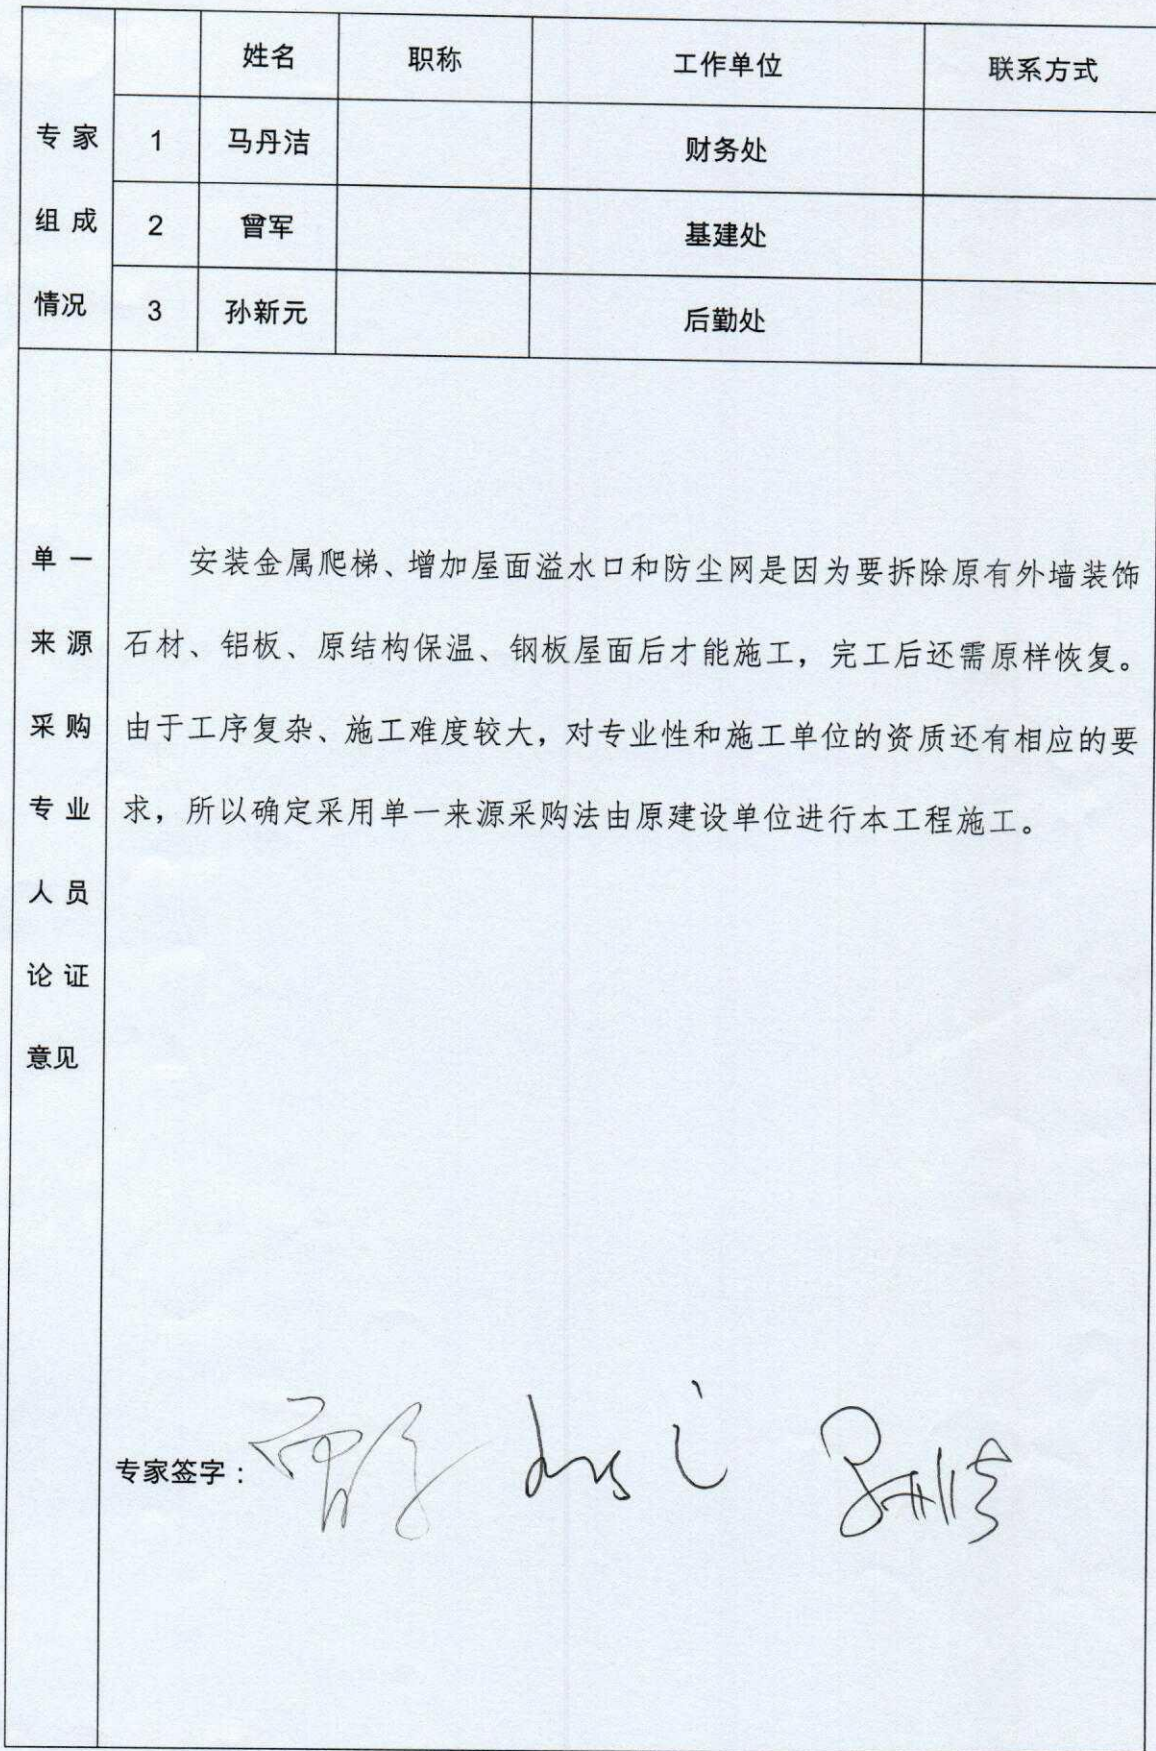 姓名 职称 工作单位 联系方式
专家 1 马丹洁 财务处
组成 2 曾军 基建处
情况 3 孙新元 后勤处
单一
来源
采购
专业
人员
论证
意见
安装金属爬梯、增加屋面溢水口和防尘网是因为要拆除原有外墙装饰
石材、铝板、原结构保温、钢板屋面后才能施工，完工后还需原样恢复。
由于工序复杂、施工难度较大，对专业性和施工单位的资质还有相应的要
求，所以确定采用单一来源采购法由原建设单位进行本工程施工。
专家签字：